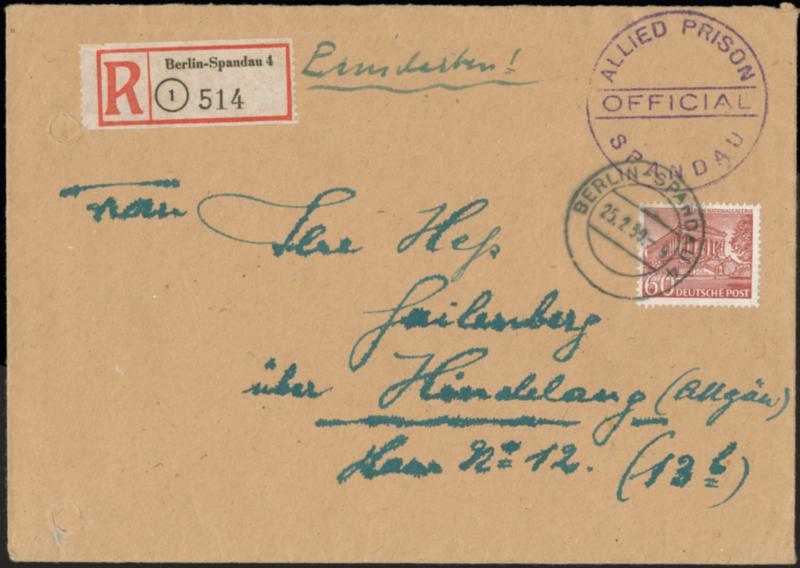 Berlin-Spandau 4
R
1 514
Einschreiben!
ALLIED PRISON
OFFICIAL
SPANDAU
BERLIN-SPANDAU 4
25.2.50
NATIONALGALERIE
60 DEUTSCHE POST
Frau
Ilse Heß
Gailenberg
über Hindelang (Allgäu)
Haus Nr. 12. (13b)